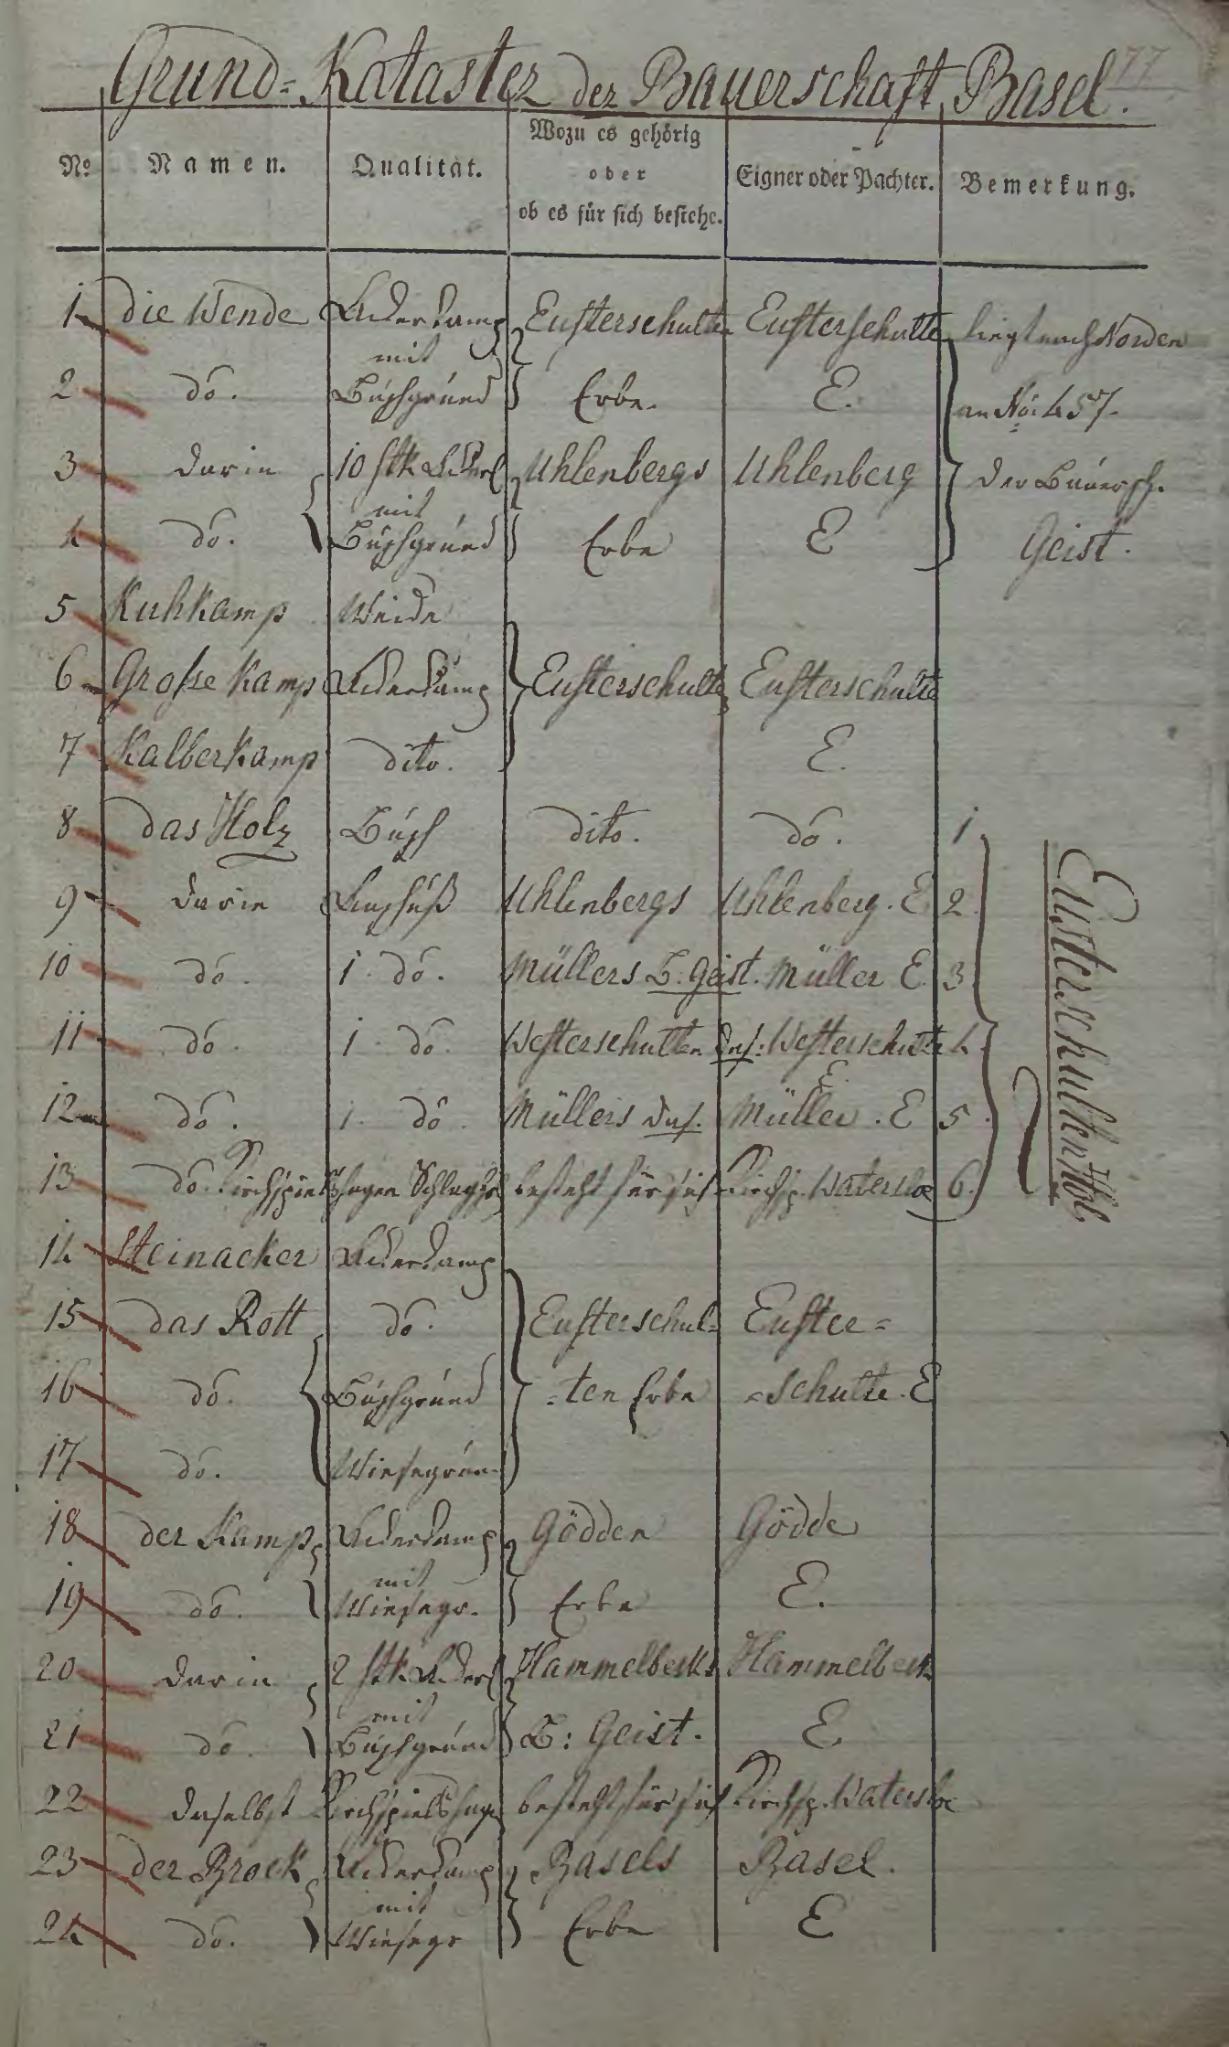 Grund-Kataster der Bauerschaft Basel.
77
No. Namen. Qualität. Wozu es gehörig oder ob es für sich bestehe. Eigner oder Pachter. Bemerkung.
1 die Wende Ackerkamp Eusterschulte Eusterschulte liegt nach Norden
mit
2 do. Buschgrund Erbe. E. an No: 457.
3 darin 10 Stk. Uhlenbergs Uhlenberg der Bauersch.
mit
4 do. Buschgrund Erbe E Geist.
5 Kuhkamp Weide
6 Große Kamp Ackerkamp Eusterschulte Eusterschulte
7 Kalberkamp dito. E.
8 das Holz Busch dito. do. 1
9 darin Uhlenbergs Uhlenberg. E 2
10 do. 1 do. Müllers B. Geist. Müller E. 3
11 do. 1 do. Westerschulten das. Westerschulte 4.
E.
12 do. 1. do. Müllers das. Müller. E 5.
13 do. Kirchspielshagen besteht für sich Kirchsp. Watersloe 6.
Eusterschulten Holz
14 Steinacker Ackerkamp
15 das Rott do. Eusterschul= Euster=
16 do. Buschgrund =ten Erbe =schulte. E
17 do. Wiesegrun
18 der Kamp Ackerkamp Gödden Gödde
mit
19 do. Wiesegr. Erbe E.
20 darin 2 Stk. Hammelbecks Hammelbeck
mit
21 do. Buschgrund B: Geist. E.
22 daselbst Kirchspielshagen besteht für sich Kirchsp. Watersloe
23 der Brock Ackerkamp Basels Basel.
mit
24 do. Wiesegr Erbe E